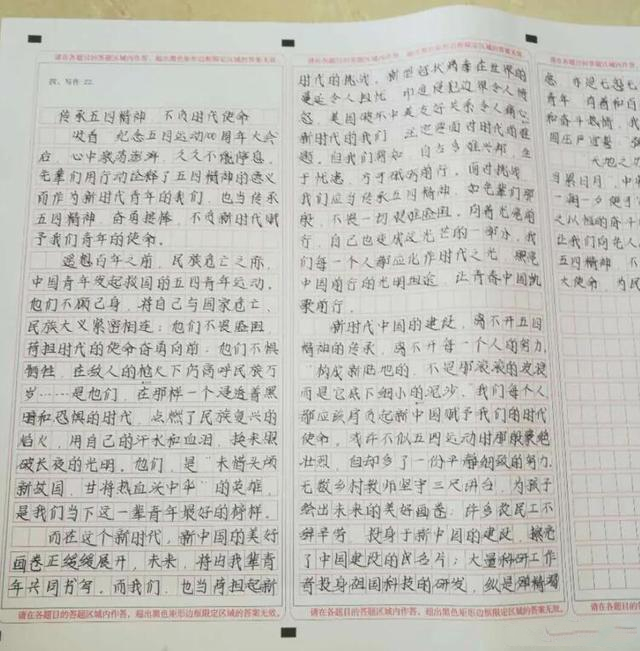 请在各题目的答题区域内作答，超出黑色矩形边框限定区域的答案无效。
四、写作 22.
传承五四精神 不负时代使命
收看 纪念五四运动100周年大会
后，心中激荡澎湃，久久不能停息。
先辈们用行动诠释了五四精神的意义
而作为新时代青年的我们，也当传承
五四精神，奋勇接棒，不负新时代赋
予我们青年的使命。
遥想百年之前，民族危亡之际，
中国青年发起救国的五四青年运动。
他们不顾己身，将自己与国家危亡、
民族大义紧密相连；他们不畏险阻，
荷担时代的使命奋勇向前；他们不惧
牺牲，在敌人的枪火下仍高呼民族万
岁……是他们，在那样一个浸透着黑
暗和恐惧的时代，点燃了民族复兴的
焰火，用自己的汗水和血泪，换来银
破长夜的光明。他们，是“未惜头颅
新故国，甘将热血沃中华”的英雄，
是我们当下这一辈青年最好的榜样。
而在这个新时代，新中国的美好
画卷正缓缓展开，未来，将由我辈青
年共同书写。而我们，也当荷担起新
请在各题目的答题区域内作答，超出黑色矩形边框限定区域的答案无效。
请在各题目的答题区域内作答，超出黑色矩形边框限定区域的答案无效。
时代的挑战。新型冠状病毒在世界的
蔓延令人担忧 印度侵犯边界令人愤
怒，美国破坏中美友好关系令人痛心
新时代的我们 正迎面对时代的难
题。但我们深知 自古多难兴邦，生
于忧患，方于砥砺前行。面对挑战，
我们应当传承五四精神，如先辈们那
般，不畏一切艰难险阻，向着光亮前
行，自己也变成这光芒的一部分，我
们每一个人都应化作时代之光，照亮
中国前行的光明坦途，让青春中国凯
歌前行。
新时代中国的建设，离不开五四
精神的传承，离不开每一个人的努力。
“构成新陆地的，不是那滚滚的波浪
而是它底下细小的泥沙。”我们每个人
都应该肩负起新中国赋予我们的时代
使命。或许不似五四运动时那般艰绝
壮烈，但却多了一份平静细致的努力。
无数乡村教师坚守三尺讲台，为孩子
绘出未来的美好画卷；许多农民工不
辞辛劳，投身于新中国的建设，擦亮
了中国建设的民名片；大量科研工作
者投身祖国科技的研发，纵是殚精竭
请在各题目的答题区域内作答，超出黑色矩形边框限定区域的答案无效。
请在各题目的答题区域
虑，亦是无怨无
青年
和奋斗热情，我
国庄严宣誓，强
大地之
当累日月，中
一朝一夕便于
之以恒的奋斗
让我们向先人
五四精神 不
大使命，为民
请在各题目的答题区域